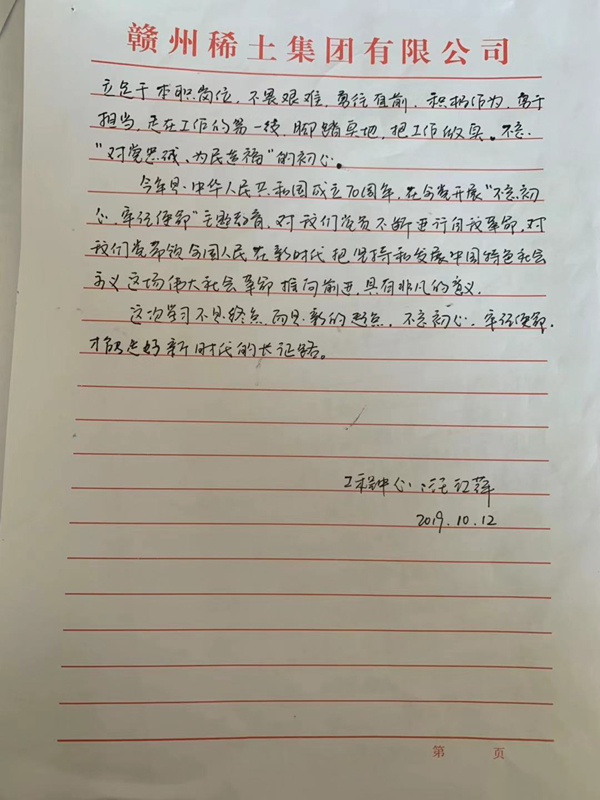 赣州稀土集团有限公司
立足于本职岗位，不畏艰难，勇往直前，积极作为，勇于
担当，走在工作的第一线，脚踏实地，把工作做实。不忘
“对党忠诚，为民造福”的初心。
今年是中华人民共和国成立70周年，在全党开展“不忘初
心，牢记使命”主题教育，对我们党员不断进行自我革命，对
我们党带领全国人民在新时代把坚持和发展中国特色社会
主义这场伟大社会革命推向前进具有非凡的意义.
这次学习不是终点，而是新的起点，不忘初心，牢记使命，
才能走好新时代的长征路。
工程中心：汪红萍
2019.10.12
第 页